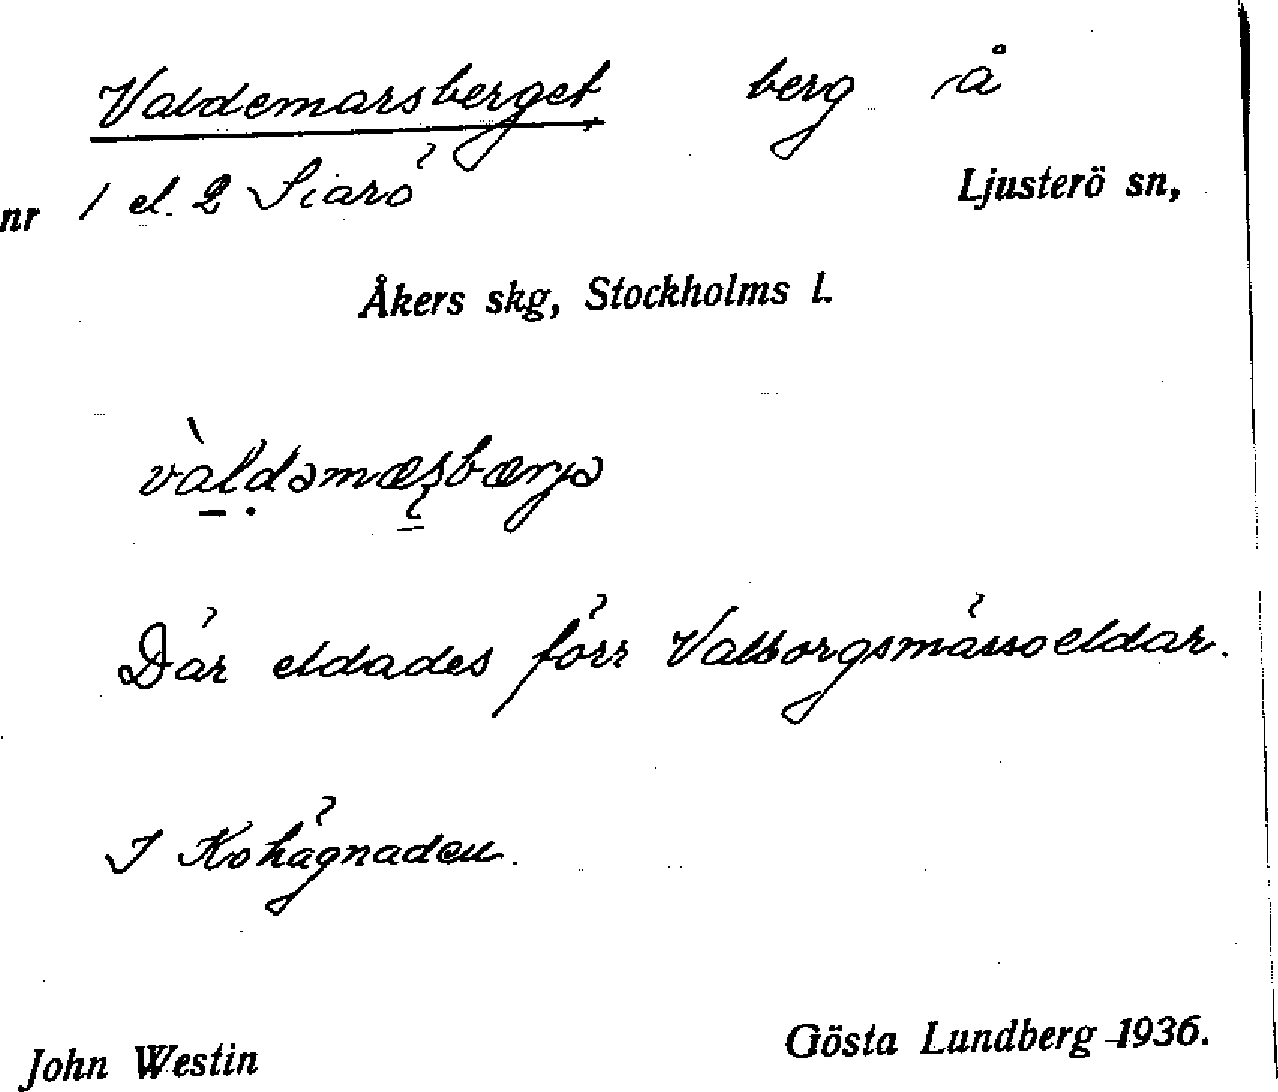 Valdemarsberget berg å
nr 1 el. 2 Siarö Ljusterö sn,
Åkers skg, Stockholms l.
Där eldades förr Valborgsmässoeldar.
I Kohägnaden.
John Westin Gösta Lundberg 1936.